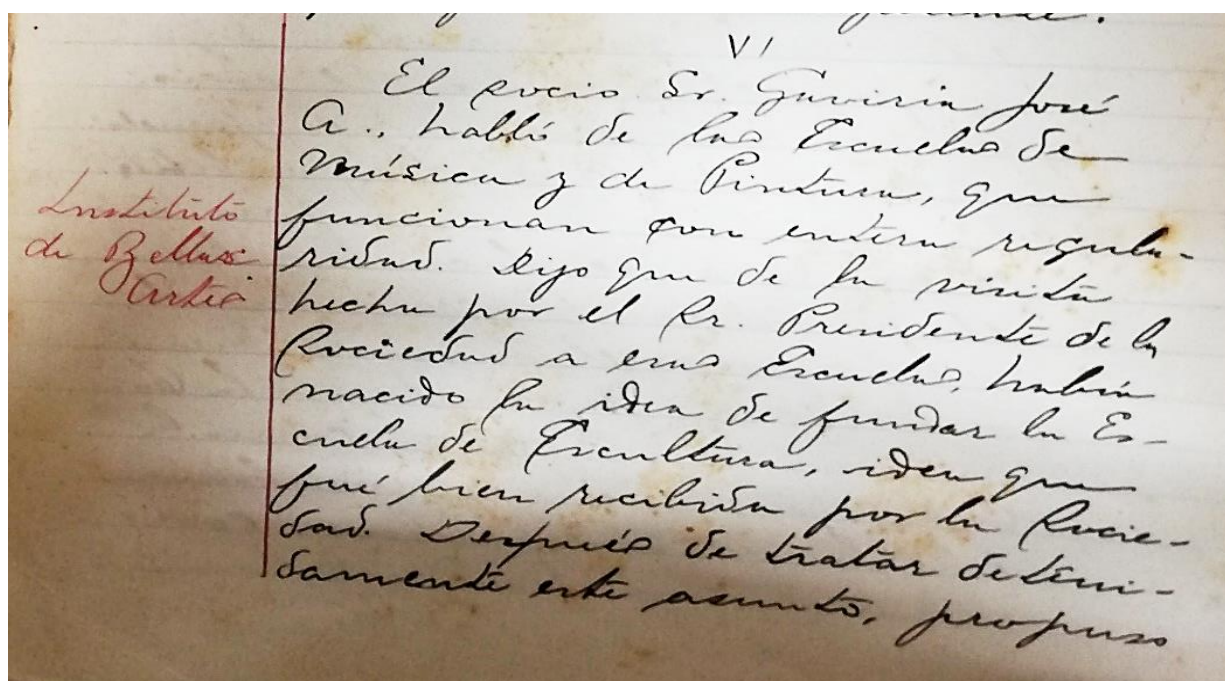 VI
El socio Sr. Gaviria José
A., habló de las Escuelas de
Música y de Pintura, que
funcionan con entera regula-
ridad. Dijo que de la visita
hecha por el Sr. Presidente de la
Sociedad a esas Escuelas, había
nacido la idea de fundar la Es-
cuela de Escultura, idea que
fué bien recibida por la Socie-
dad. Después de tratar deteni-
damente este asunto, propuso
Instituto
de Bellas
Artes